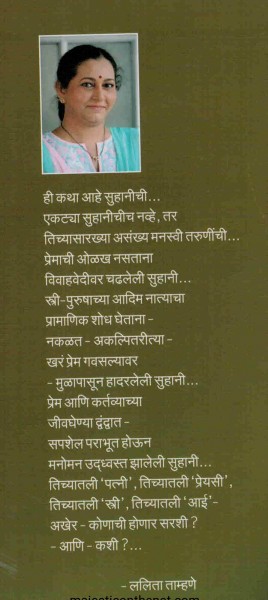 ही कथा आहे सुहानीची...
एकट्या सुहानीचीच नव्हे, तर
तिच्यासारख्या असंख्य मनस्वी तरुणींची...
प्रेमाची ओळख नसताना
विवाहवेदीवर चढलेली सुहानी...
स्त्री-पुरुषाच्या आदिम नात्याचा
प्रामाणिक शोध घेताना -
नकळत - अकल्पितरीत्या -
खरं प्रेम गवसल्यावर
- मुळापासून हादरलेली सुहानी...
प्रेम आणि कर्तव्याच्या
जीवघेण्या द्वंद्वात -
सपशेल पराभूत होऊन
मनोमन उद्ध्वस्त झालेली सुहानी...
तिच्यातली 'पत्नी', तिच्यातली 'प्रेयसी',
तिच्यातली 'स्त्री', तिच्यातली 'आई'-
अखेर - कोणाची होणार सरशी ?
- आणि - कशी ?...
- ललिता ताम्हणे
majesticonthenet.com